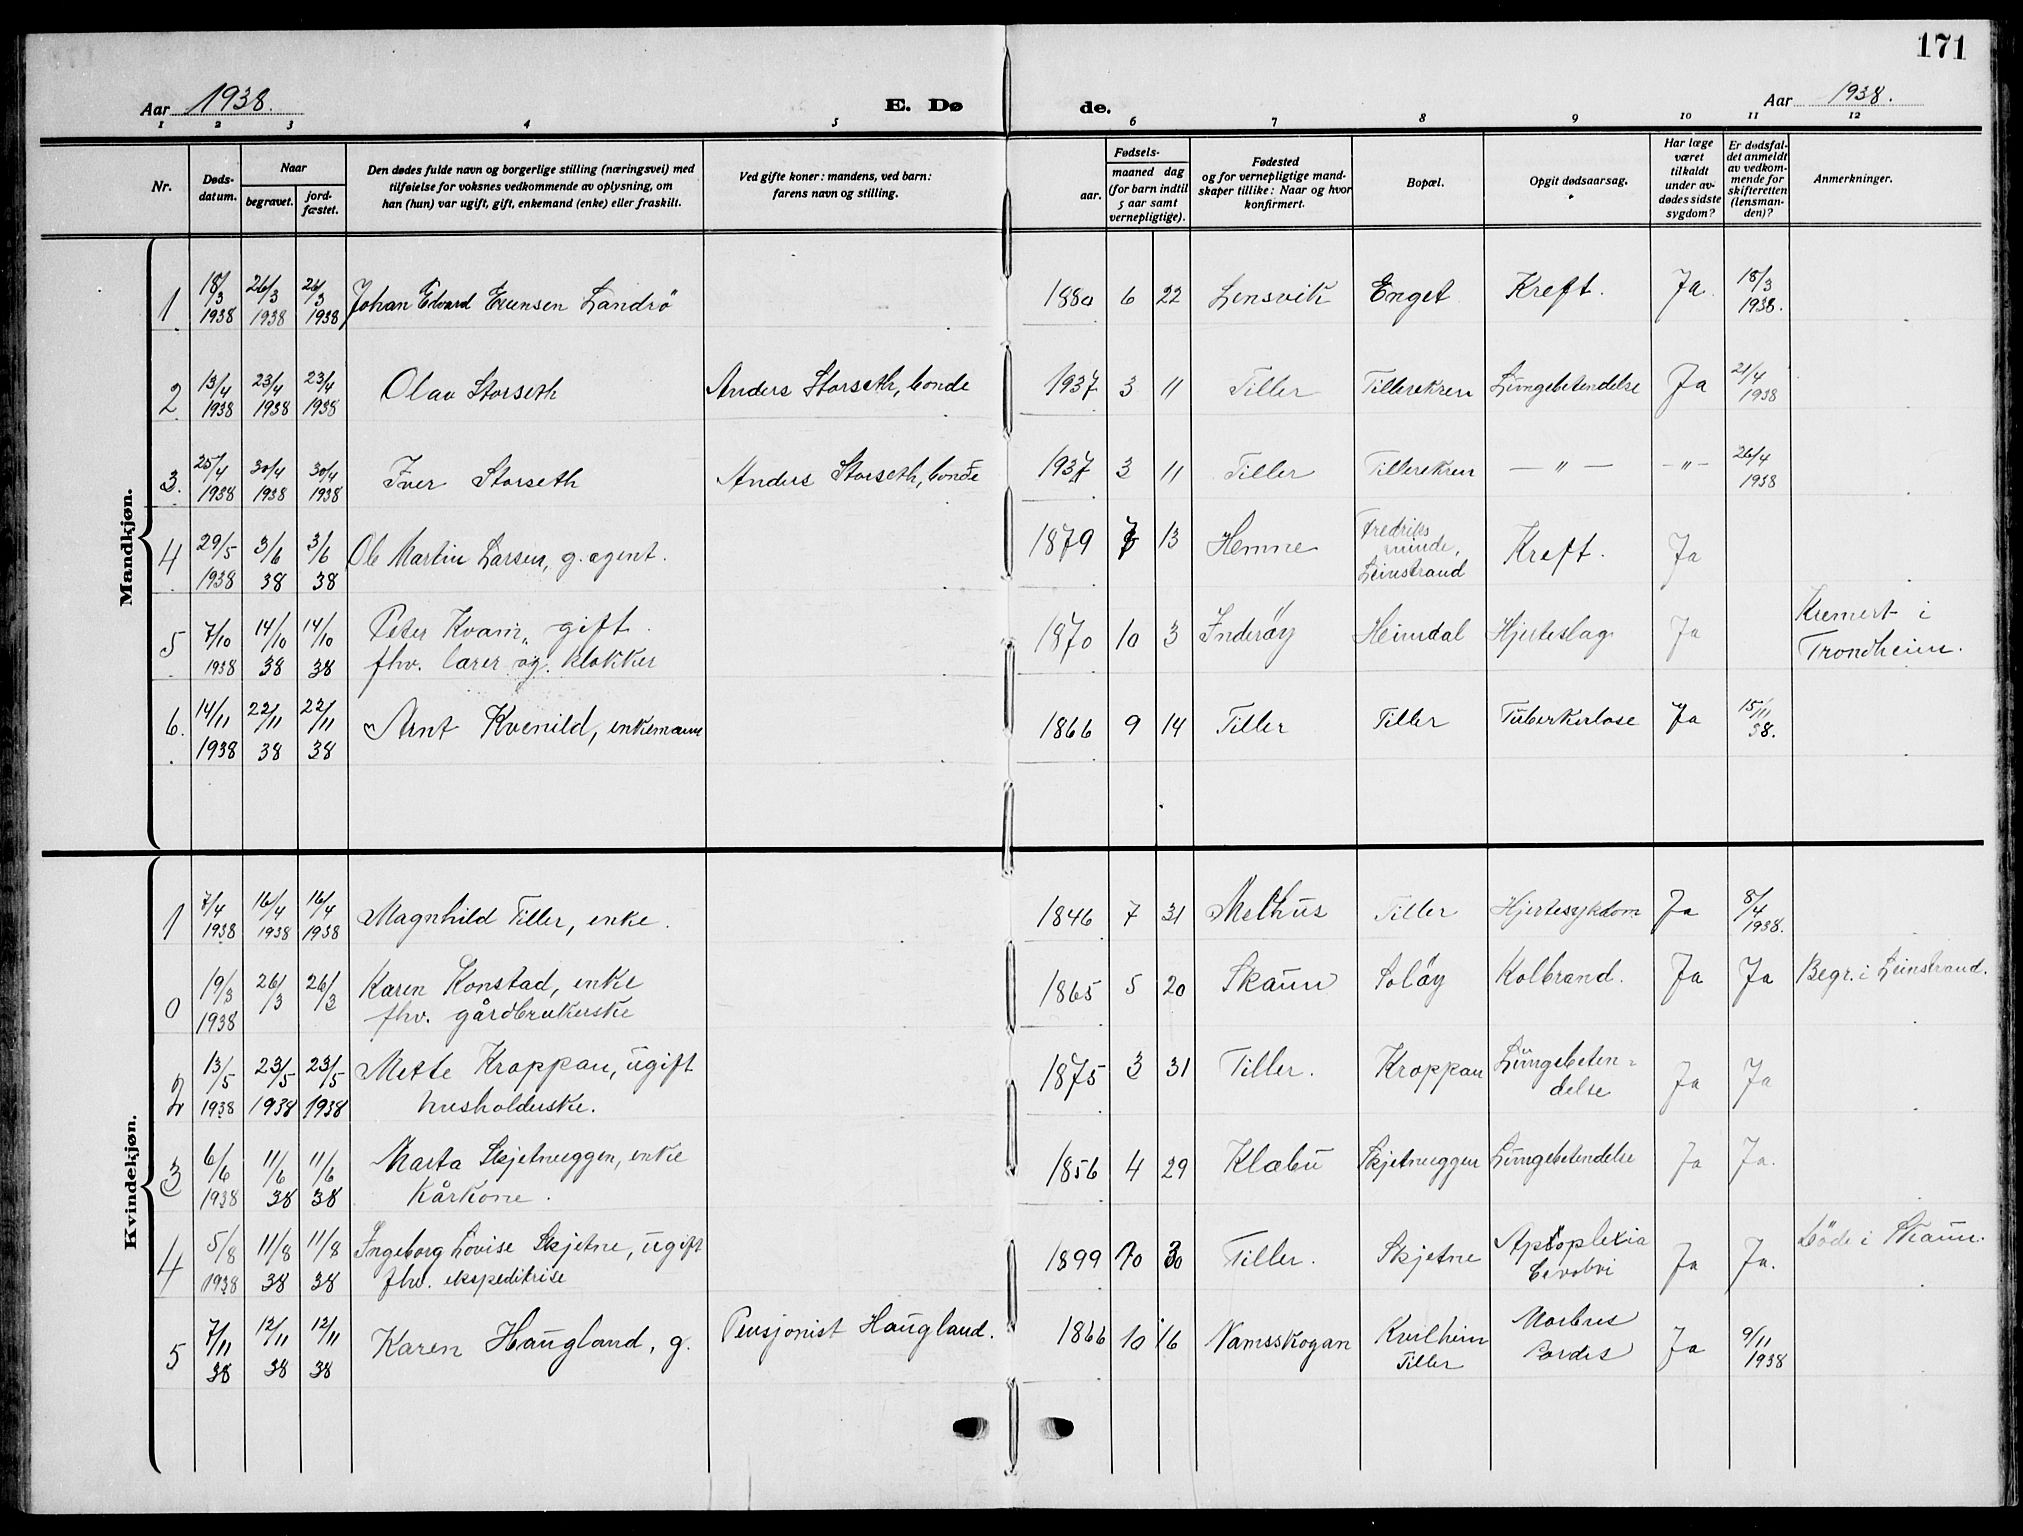 171
Aar 1938.
E. Dø
de.
Aar 1938.
1 2 3 4 5 6 7 8 9 10 11 12
Nr.
Døds-
datum.
Naar
begravet.
jord-
fæstet.
Den dødes fulde navn og borgerlige stilling (næringsvei) med
tilføielse for voksnes vedkommende av oplysning, om
han (hun) var ugift, gift, enkemand (enke) eller fraskilt.
Ved gifte koner: mandens, ved barn:
farens navn og stilling.
Fødsels-
aar.
maaned dag
(for barn indtil
5 aar samt
vernepligtige).
Fødested
og for vernepligtige mand-
skaper tillike: Naar og hvor
konfirmert.
Bopæl.
Opgit dødsaarsag.
Har læge
været
tilkaldt
under av-
dødes sidste
sygdom?
Er dødsfal-
det anmeldt
av vedkom-
mende for
skifteretten
(lensman-
den)?
Anmerkninger.
Mandkjøn.
1 18/3 1938 26/3 1938 26/3 1938 Johan Edvard Landrö 1880 6 22 Lensvik Enget Kreft. Ja. 18/3 1938.
2 13/4 1938 23/4 1938 23/4 1938 Olav Storseth Anders Storseth, bonde 1937 3 11 Tiller Tillerekren Lungebetendelse Ja 21/4 1938
3. 25/4 1938 30/4 1938 30/4 1938 Iver Storseth Anders Storseth, bonde 1937 3 11 Tiller Tillerekren — " — - " - 26/4 1938
4 29/5 1938 3/6 38 3/6 38 Ole Martin Larsen, g. agent. 1879 13 Hemne Fredriks
minde,
Leinstrand Kreft. Ja
5 7/10 1938 14/10 38 14/10 38 Peter Kvam, gift.
fhv. lærer og klokker 1870 10 3 Inderöy Heimdal Hjerteslag Ja Kremert i
Trondheim.
6. 14/11 1938 22/11 38 22/11 38 Arnt Kvenild, enkemann 1866 9 14 Tiller Tiller Tuberkulose Ja 15/11 38.
Kvindekjøn.
1 7/4 1938 16/4 1938 16/4 1938 Magnhild Tiller, enke. 1846 7 31 Melhus Tiller Hjertesykdom Ja 8/4 1938.
0 19/3 1938 26/3 26/3 Karen Konstad, enke
fhv. gårdbrukerske 1865 5 20 Skaun Solöy Kolbrand. Ja Ja Begr. i Leinstrand.
2 13/5 1938 23/5 1938 23/5 1938 Mette Kroppan, ugift
husholderske. 1875 3 31 Tiller. Kroppan Lungebeten=
delse Ja Ja
3 6/6 1938 11/6 38 11/6 38 Marta Skjetneggen, enke
Kårkone. 1856 4 29 Klæbu Skjetneggen Lungebetendelse Ja Ja.
4 5/8 1938 11/8 38 11/8 38 Ingeborg Lovise Skjetne, ugift
fhv. ekspeditrise 1899 10 30 Tiller. Skjetne Apoplexia Ja Ja. Döde i Skaun.
5 7/11 38 12/11 38 12/11 38 Karen Haugland, g. Pensjonist Haugland. 1866 10 16 Namsskogan Kvilheim
Tiller Morbus
Cordis Ja 9/11 1938